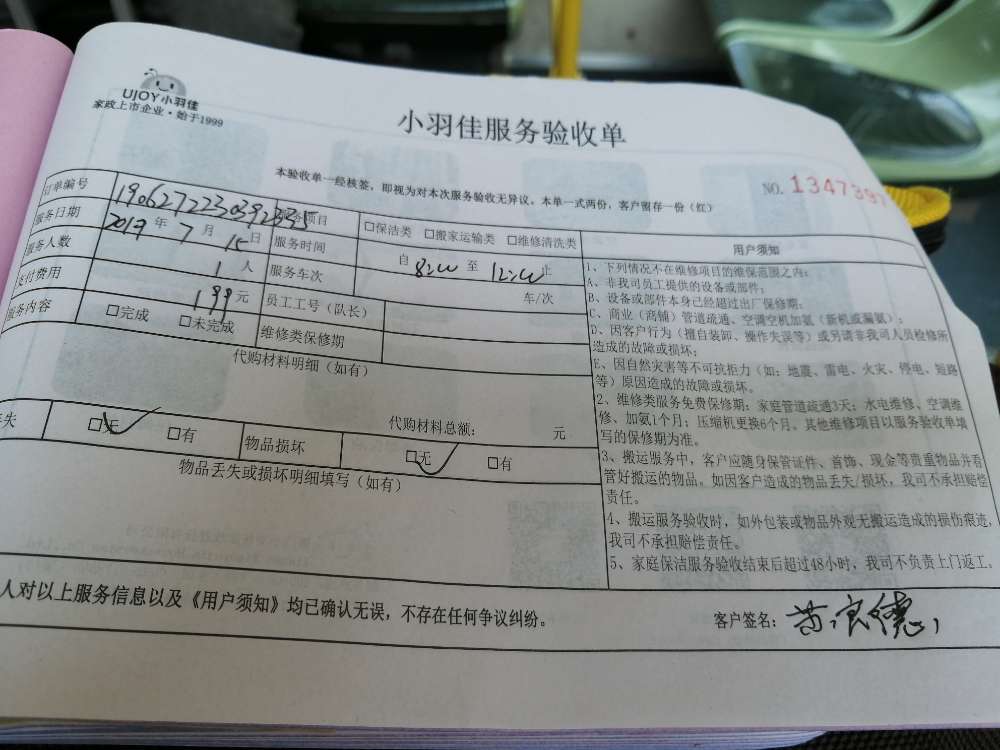 UJOY小羽佳
家政上市企业·始于1999
小羽佳服务验收单
本验收单一经核签，即视为对本次服务验收无异议。本单一式两份，客户留存一份（红）
NO. 1347397
订单编号 服务项目 □保洁类 □搬家运输类 □维修清洗类
服务日期 2019年7月15日 服务时间 自 8:00 至 12:00 止
服务人数 1 人 服务车次 车/次
支付费用 199元 员工工号（队长）
服务内容 □完成 □未完成 维修类保修期
代购材料明细（如有）
代购材料总额： 元
丢失 □无 □有 物品损坏 □无 □有
物品丢失或损坏明细填写（如有）
用户须知
1、下列情况不在维修项目的维保范围之内：
A、非我司员工提供的设备或部件；
B、设备或部件本身已经超过出厂保修期；
C、商业（商铺）管道疏通、空调空机加氨（新机或漏氨）；
D、因客户行为（擅自装卸、操作失误等）或另请非我司人员检修所
造成的故障或损坏；
E、因自然灾害等不可抗拒力（如：地震、雷电、火灾、停电、短路
等）原因造成的故障或损坏。
2、维修类服务免费保修期：家庭管道疏通3天；水电维修、空调维
修、加氨1个月；压缩机更换6个月。其他维修项目以服务验收单填
写的保修期为准。
3、搬运服务中，客户应随身保管证件、首饰、现金等贵重物品并看
管好搬运的物品。如因客户造成的物品丢失/损坏，我司不承担赔偿
责任。
4、搬运服务验收时，如外包装或物品外观无搬运造成的损伤痕迹，
我司不承担赔偿责任。
5、家庭保洁服务验收结束后超过48小时，我司不负责上门返工。
人对以上服务信息以及《用户须知》均已确认无误，不存在任何争议纠纷。
客户签名：